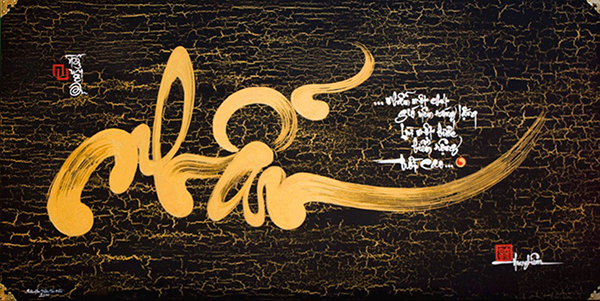 Nhẫn
... Nhẫn một chút
gió yên sóng lặng
lùi một bước
biển rộng
trời cao...